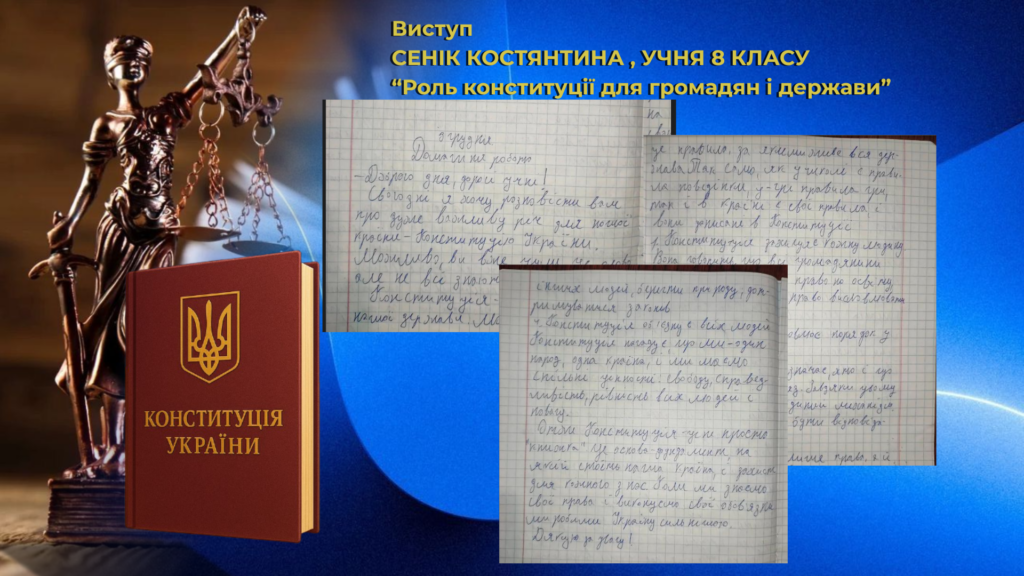 Виступ
СЕНІК КОСТЯНТИНА , УЧНЯ 8 КЛАСУ
“Роль конституції для громадян і держави”
КОНСТИТУЦІЯ
УКРАЇНИ
грудня
Домашня робота
– Доброго дня, дорогі учні!
Сьогодні я хочу розповісти вам
про дуже важливу річ для нашої
країни – Конституцію України.
Можливо, ви вже
але не всі знают
Конституція –
нашої держави.
на
це правила, за якими живе вся дер-
жава. Так само, як у школі є прави-
ла поведінки, у грі правила гри,
так і в країні є свої правила і
вони записані в Конституції.
1. Конституція захищає кожну людину
Вона говорить що всі громадянини
право на освіту,
право висловлювати
порядок у
що
механізм
бути відповіда
лише права, а й
інших людей, берегти природу, дот-
римуватися законів.
4. Конституція об'єднує всіх людей
Конституція нагадує, що ми – один
народ, одна країна, і ми маємо
спільні цінності: свободу, справед-
ливість, рівність всіх людей і
повагу.
Отже Конституція – це не просто
"книжка" Це основа фундамент, на
якій стоїть наша країна, є захист
для кожного з нас. Коли ми знаємо
свої права і виконуємо свої обов'язки
ми робимо Україну сильнішою.
Дякую за увагу!